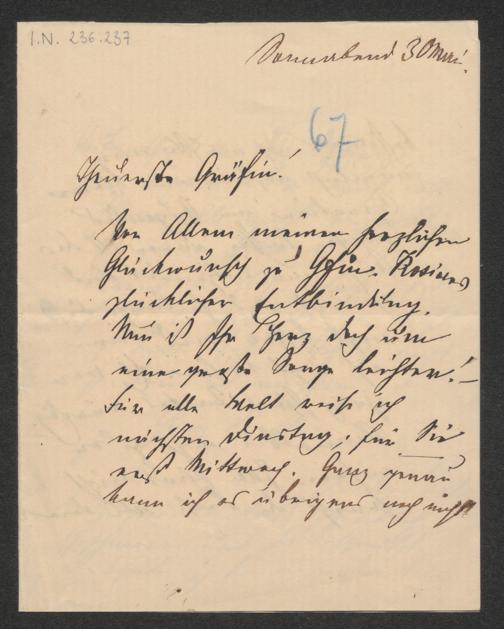 I.N. 236.237
Sonnabend 30 Mai.
67
Theuerste Gräfin!
Vor Allem meinen herzlichen
Glückwunsch zu Gfin. Rosines
glücklicher Entbindung.
Nun ist Ihr Herz doch um
eine große Sorge leichter! –
Für alle Welt reise ich
nächsten Dinstag, für Sie
erst Mittwoch. Ganz genau
kann ich es übrigens noch nicht